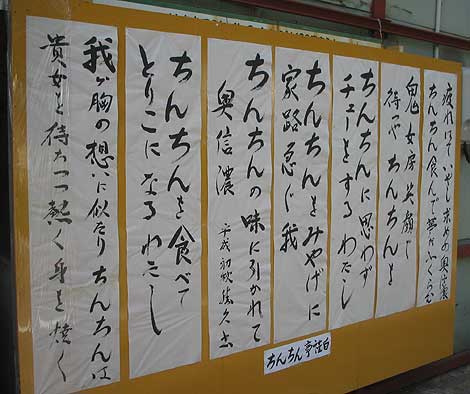 疲れはていやし求めの奥信濃
ちんちん食んで夢がふくらむ
鬼女房笑顔で
待つやちんちんと
ちんちんに思わず
チューとするわたし
ちんちんをみやげに
家路急ぐ我
ちんちんの味に引かれて
奥信濃
平成初秋
ちんちんを食べて
とりこになるわたし
我が胸の想いに似たりちんちんは
貴女を待ちつつ熱く身を焼く
亭ちんちん